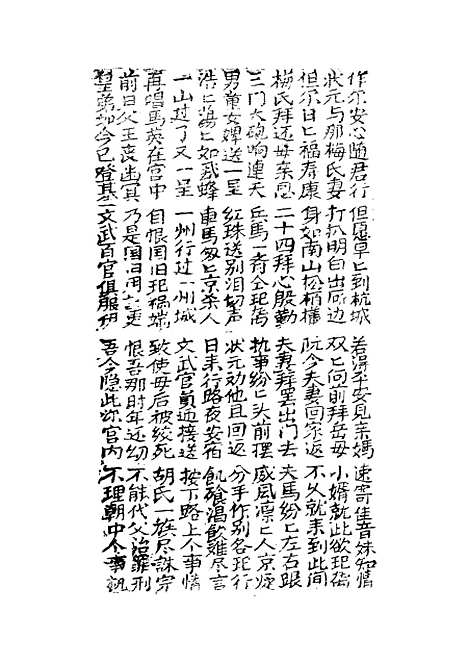 作尔安心随君行 但愿早匕到杭城 若得平安見亲媽 速寄佳音妹知情
状元与那梅氏妻 打扒明白出府边 双匕向前拜岳母 小婿就此欲起
但尔日匕福寿康 身如南山松柏樣 阮今夫妻回家返 不久就来到此间
梅氏拜还母亲恩 二十四拜心殷勤 夫妻拜罢出门去 夫馬纷匕左右跟
三门大炮响連天 兵馬一齐全起 执事纷匕头前摆 威風凛匕人京疼
男童女婢送一呈 红珠送别泪声 状元劝他且回返 分手作别各起行
浩匕湯匕如武蜂 車馬匆匕京杀人 日来行路夜安宿 飢飡渴飲难尽言
一山过了又一呈 一州行过一州城 文武官員迎接送 按下路上个事情
再唱馬英在宫中 自恨国旧起祸端 致使母后被絞死 胡氏一族尽誅完
前日父王丧幽冥 乃是国旧用更 恨吾那时年还幼 不能代父治罪刑
弟到今已登基 文武百官俱服 吾今隐此宫内 不理朝中个事